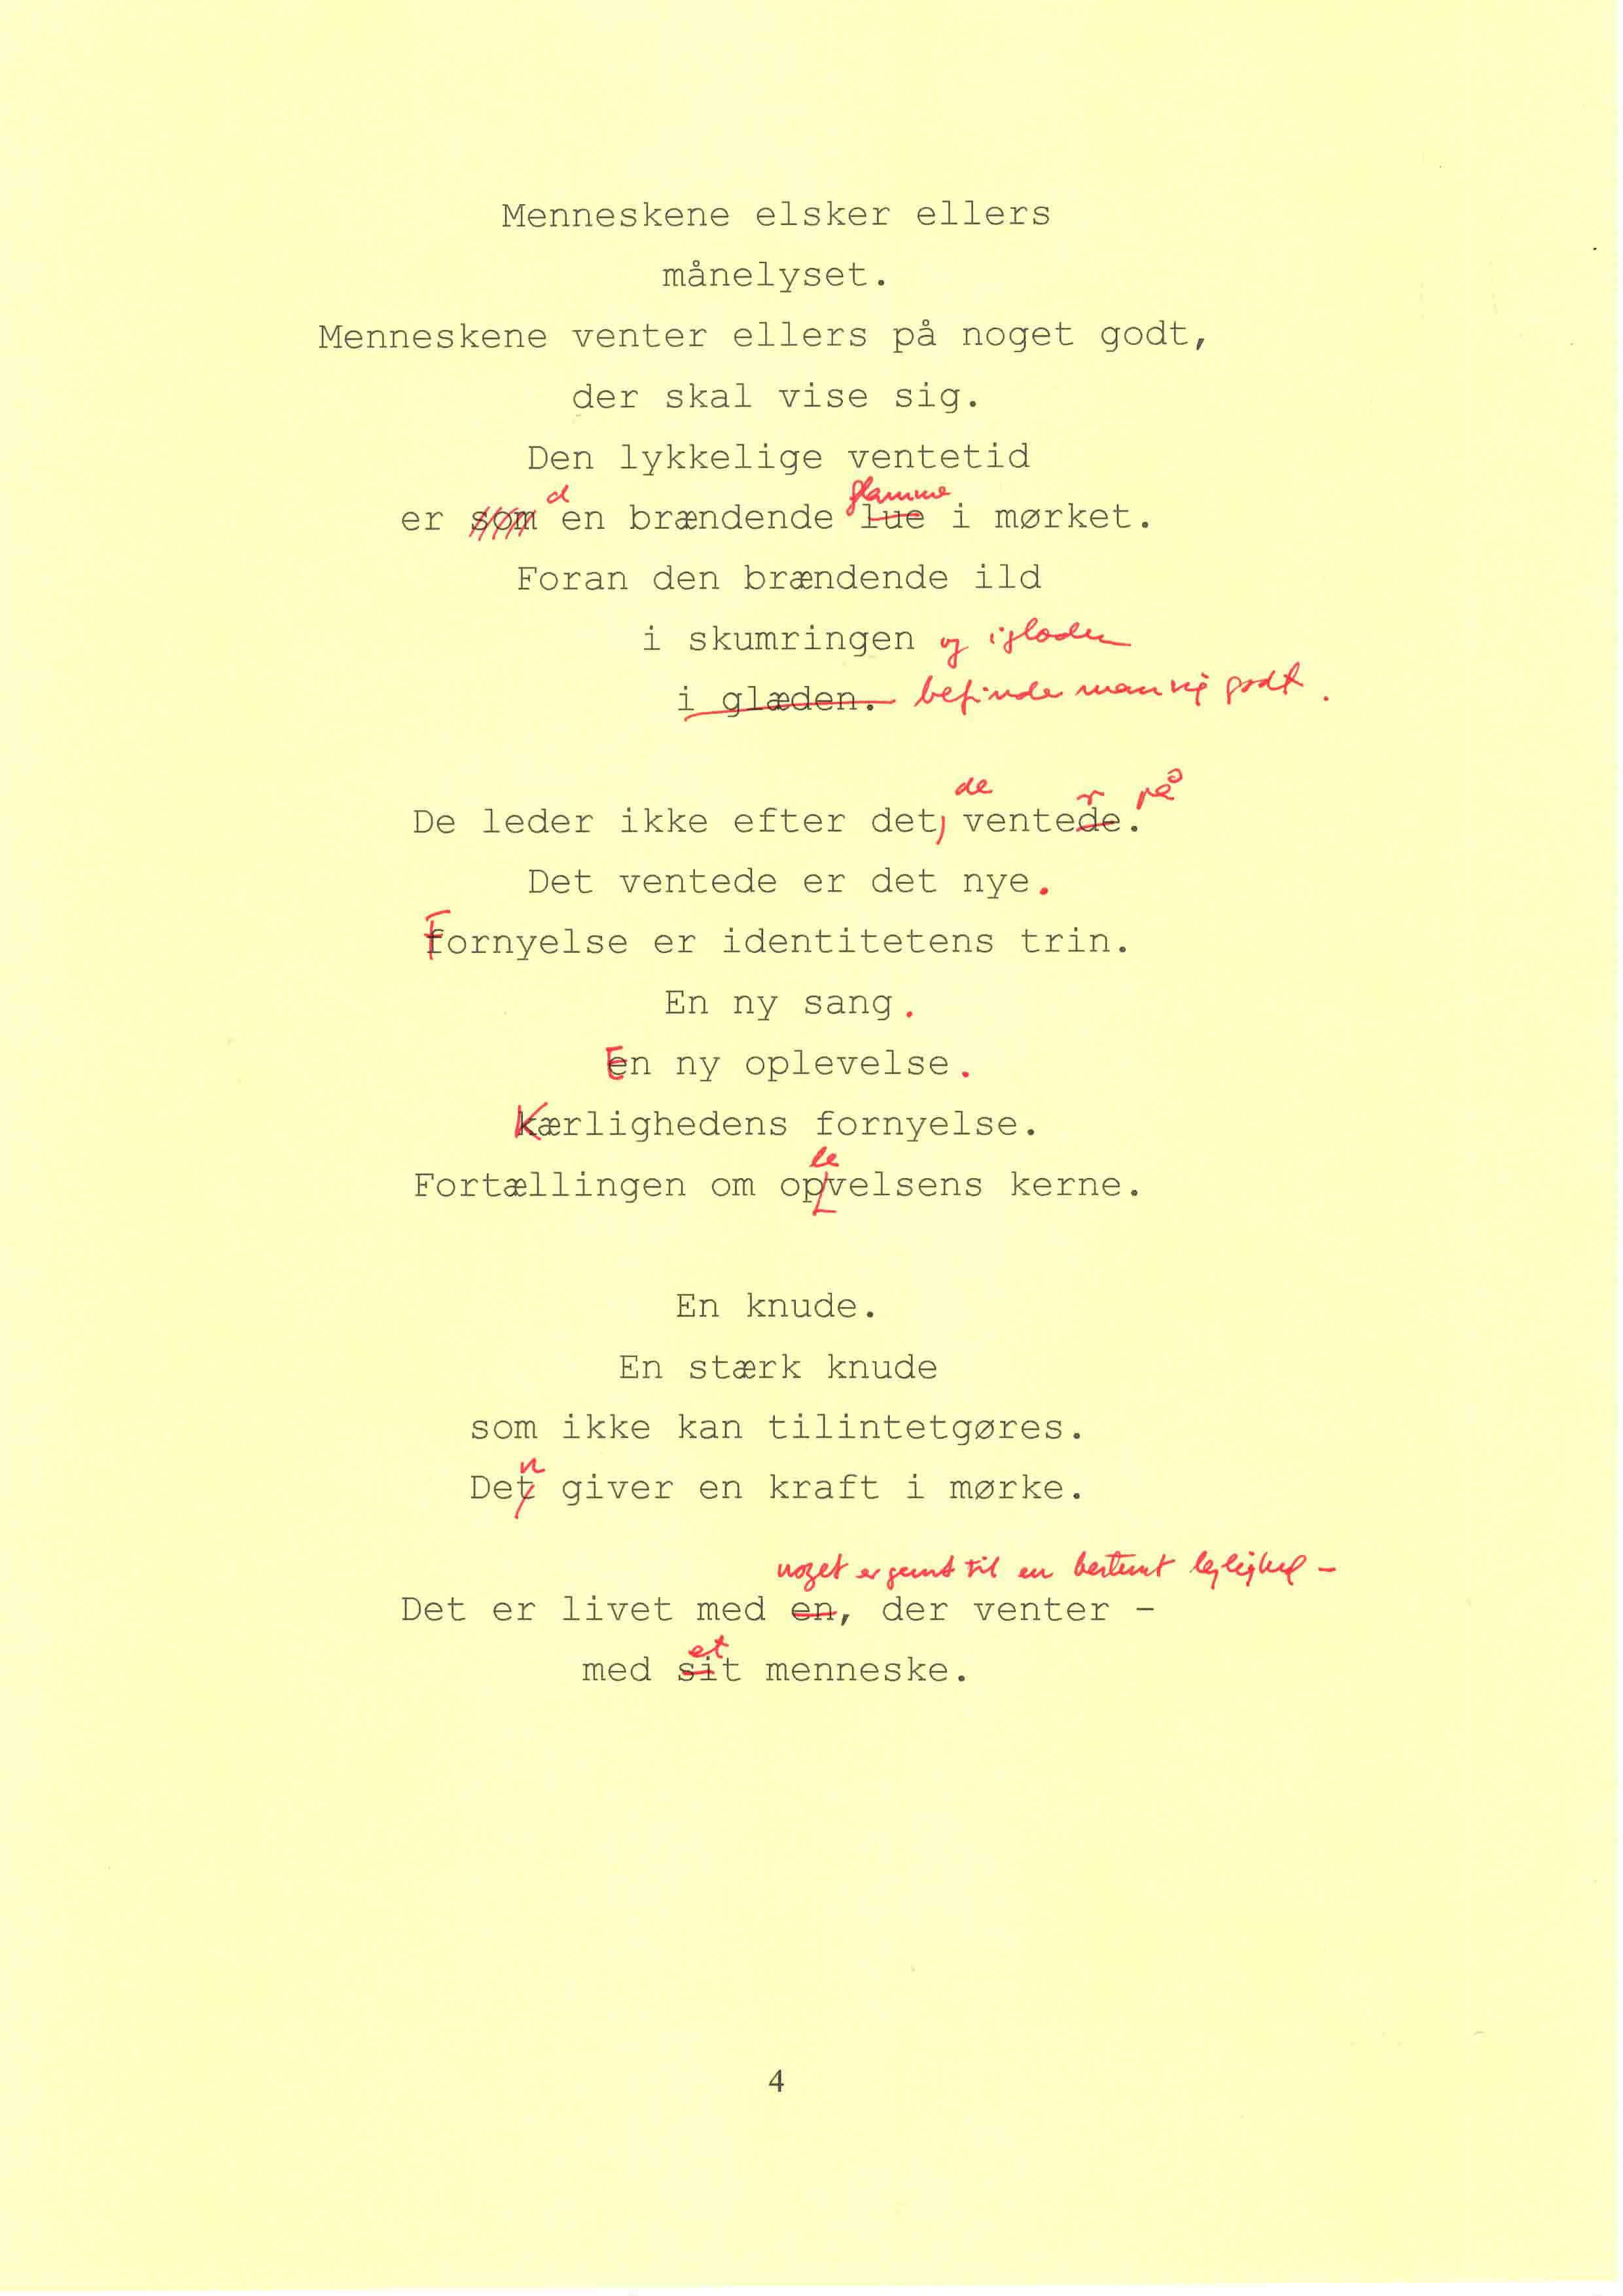 Menneskene elsker ellers
månelyset.
Menneskene venter ellers på noget godt,
der skal vise sig.
Den lykkelige ventetid
d flamme
er som en brændende lue i mørket.
Foran den brændende ild
i skumringen og i gløden
i glæden. befinde man sig godt.
de r på
De leder ikke efter det, ventede.
Det ventede er det nye.
Fornyelse er identitetens trin.
En ny sang.
En ny oplevelse.
Kærlighedens fornyelse.
le
Fortællingen om opvelsens kerne.
En knude.
En stærk knude
som ikke kan tilintetgøres.
n
Det giver en kraft i mørke.
noget er gemt til en bestemt lejlighed -
Det er livet med en, der venter -
et
med sit menneske.
4